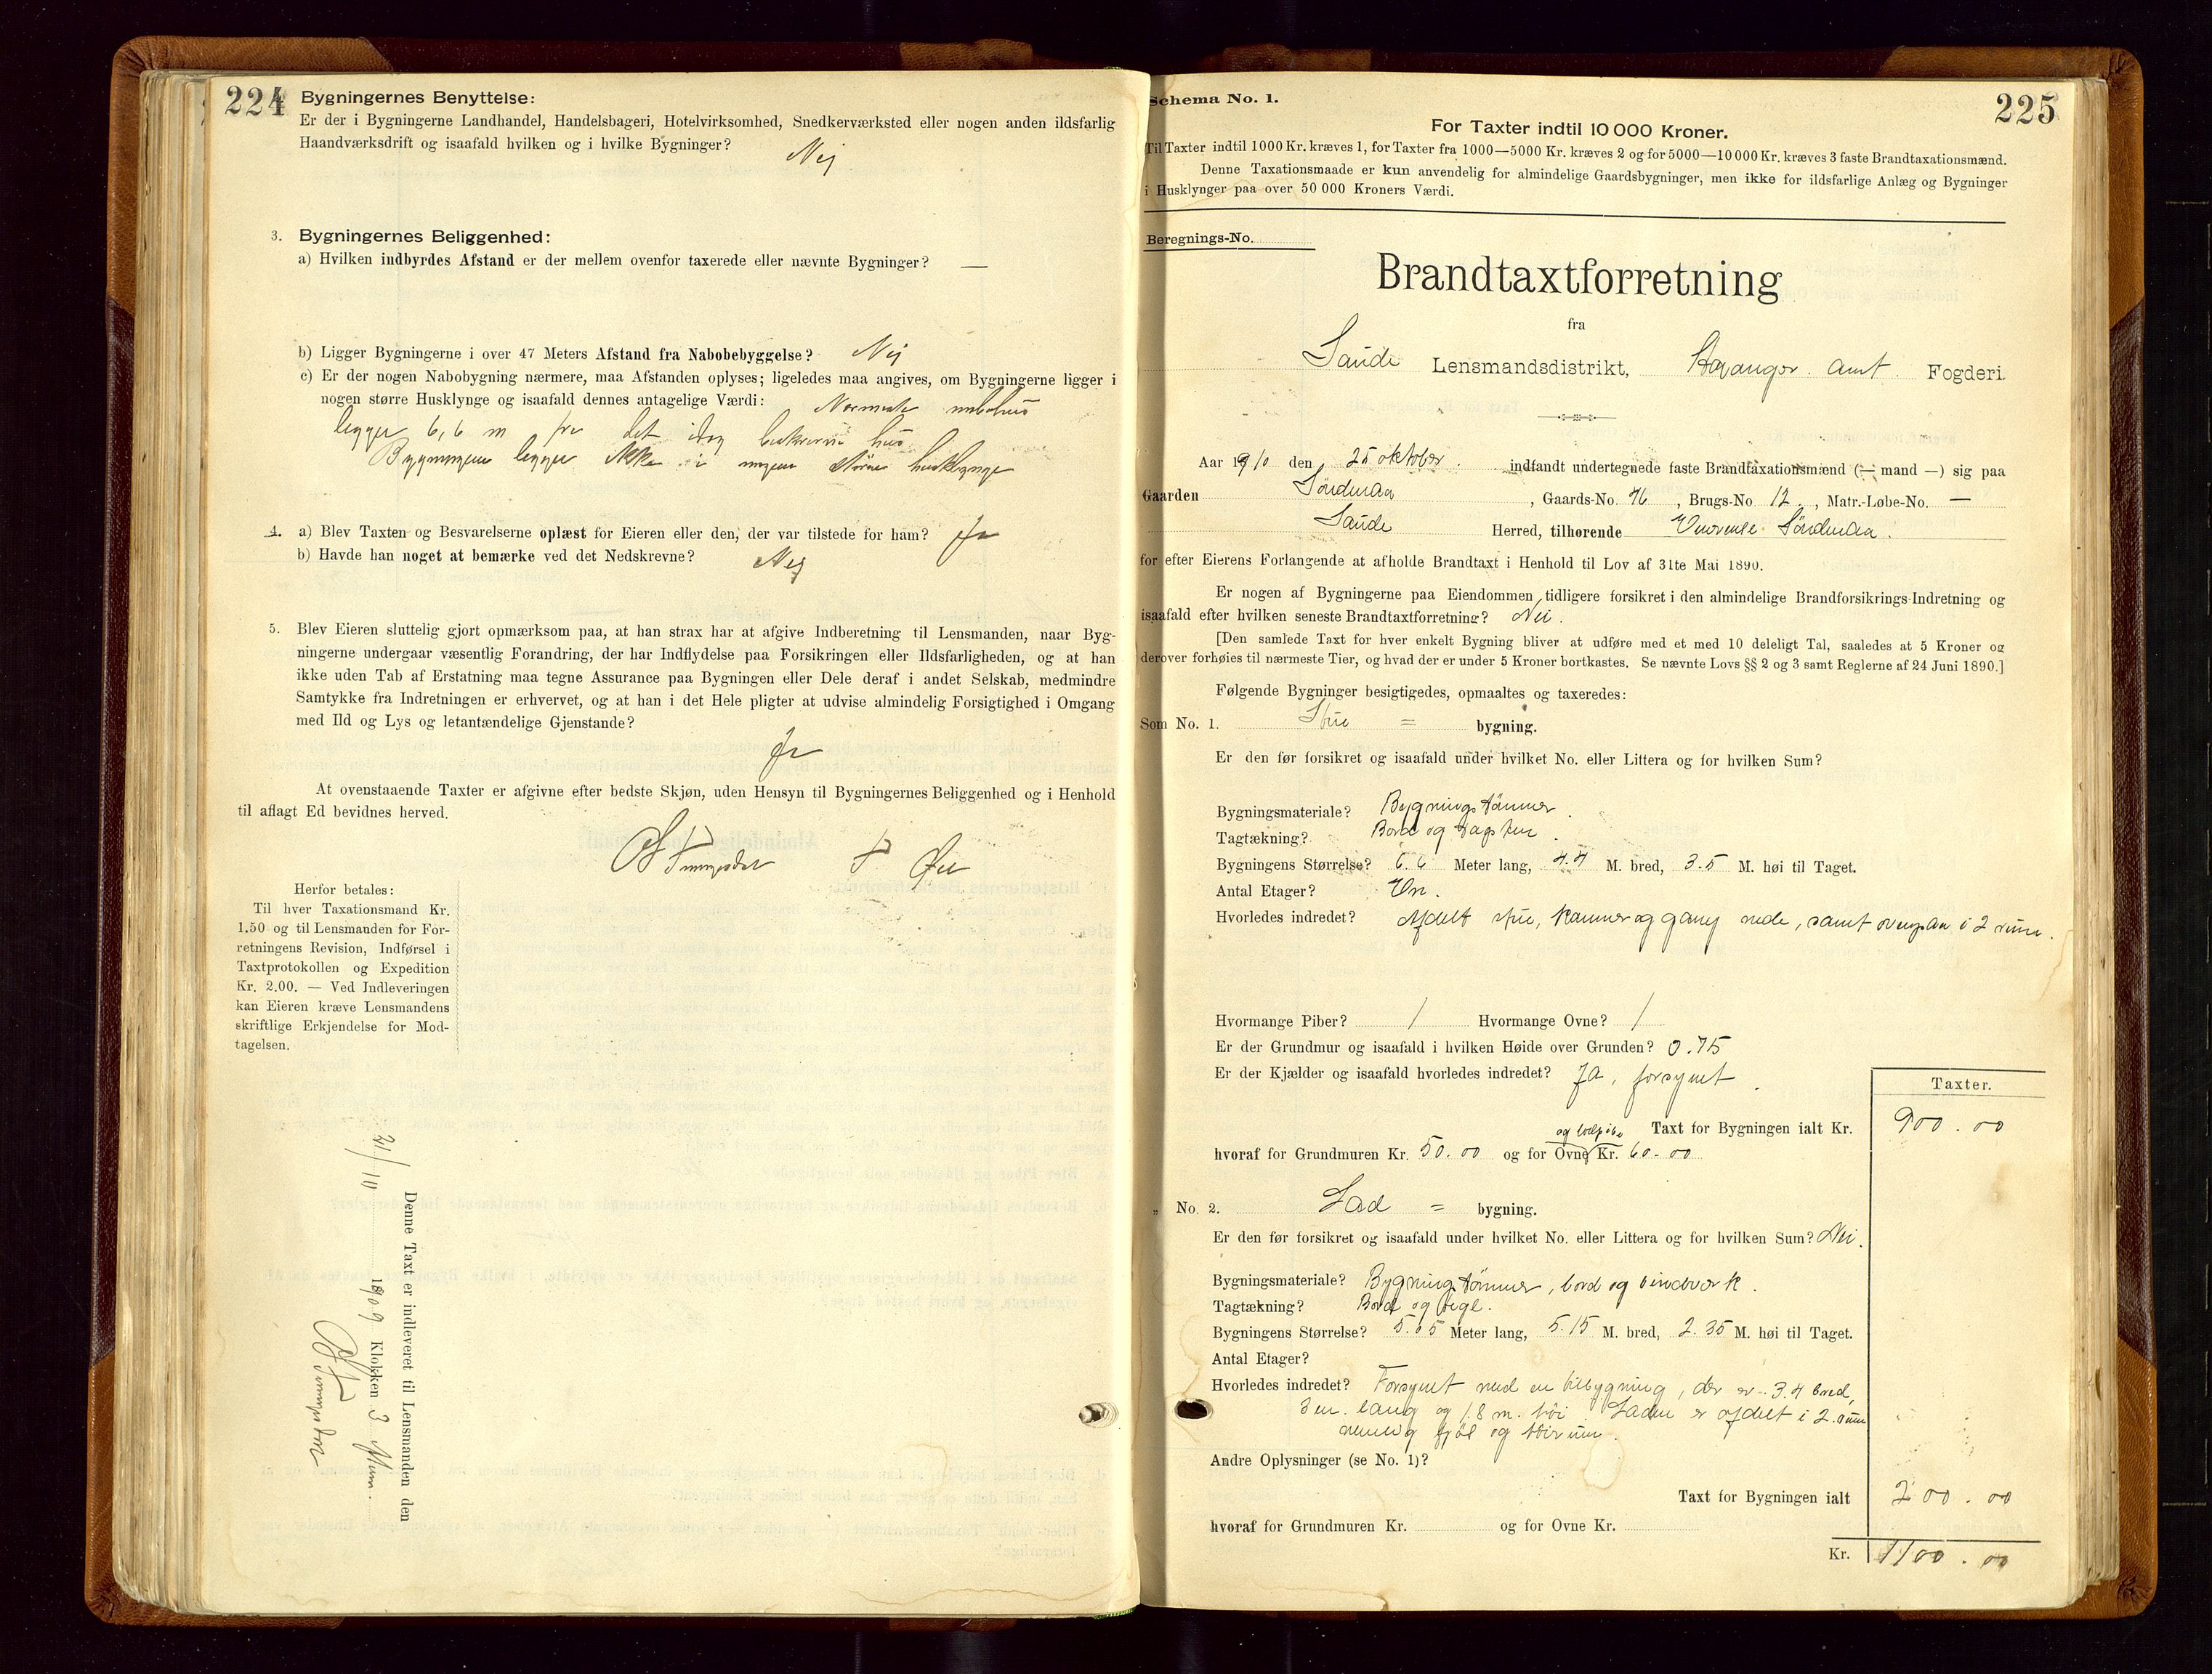 224
Bygningernes Benyttelse:
Er der i Bygningerne Landhandel, Handelsbageri, Hotelvirksomhed, Snedkerværksted eller nogen anden ildsfarlig
Haandværksdrift og isaafald hvilken og i hvilke Bygninger? Nej
3. Bygningernes Beliggenhed:
a) Hvilken indbyrdes Afstand er der mellem ovenfor taxerede eller nævnte Bygninger? —
b) Ligger Bygningerne i over 47 Meters Afstand fra Nabobebyggelse? Nej
c) Er der nogen Nabobygning nærmere, maa Afstanden oplyses; ligeledes maa angives, om Bygningerne ligger i
nogen større Husklynge og isaafald dennes antagelige Værdi: Nærmeste nabohus
ligger 6,6 m fra det idag beskrevne hus
Bygningene ligger ikke i nogen større husklynge
4. a) Blev Taxten og Besvarelserne oplæst for Eieren eller den, der var tilstede for ham? Ja
b) Havde han noget at bemærke ved det Nedskrevne? Nej
5. Blev Eieren sluttelig gjort opmærksom paa, at han strax har at afgive Indberetning til Lensmanden, naar Byg-
ningerne undergaar væsentlig Forandring, der har Indflydelse paa Forsikringen eller Ildsfarligheden, og at han
ikke uden Tab af Erstatning maa tegne Assurance paa Bygningen eller Dele deraf i andet Selskab, medmindre
Samtykke fra Indretningen er erhvervet, og at han i det Hele pligter at udvise almindelig Forsigtighed i Omgang
med Ild og Lys og letantændelige Gjenstande?
Ja
At ovenstaaende Taxter er afgivne efter bedste Skjøn, uden Hensyn til Bygningernes Beliggenhed og i Henhold
til aflagt Ed bevidnes herved.
Herfor betales:
Til hver Taxationsmand Kr.
1.50 og til Lensmanden for For-
retningens Revision, Indførsel i
Taxtprotokollen og Expedition
Kr. 2.00. — Ved Indleveringen
kan Eieren kræve Lensmandens
skriftlige Erkjendelse for Mod-
tagelsen.
Denne Taxt er indleveret til Lensmanden den
21/10 1909 Klokken 3
Schema No. 1.
225
For Taxter indtil 10 000 Kroner.
Til Taxter indtil 1000 Kr. kræves 1, for Taxter fra 1000—5000 Kr. kræves 2 og for 5000—10 000 Kr. kræves 3 faste Brandtaxationsmænd.
Denne Taxationsmaade er kun anvendelig for almindelige Gaardsbygninger, men ikke for ildsfarlige Anlæg og Bygninger
i Husklynger paa over 50 000 Kroners Værdi.
Beregnings-No.
Brandtaxtforretning
fra
Saude Lensmandsdistrikt, Stavanger amt Fogderi.
Aar 1910 den 25 oktober indfandt undertegnede faste Brandtaxationsmænd (— mand —) sig paa
Gaarden Søndenaa, Gaards-No. 46, Brugs-No. 12, Matr.-Løbe-No. —
Saude Herred, tilhørende Søndenaa.
for efter Eierens Forlangende at afholde Brandtaxt i Henhold til Lov af 31te Mai 1890.
Er nogen af Bygningerne paa Eiendommen tidligere forsikret i den almindelige Brandforsikrings-Indretning og
isaafald efter hvilken seneste Brandtaxtforretning? Nei.
[Den samlede Taxt for hver enkelt Bygning bliver at udføre med et med 10 deleligt Tal, saaledes at 5 Kroner og
derover forhøies til nærmeste Tier, og hvad der er under 5 Kroner bortkastes. Se nævnte Lovs §§ 2 og 3 samt Reglerne af 24 Juni 1890.]
Følgende Bygninger besigtigedes, opmaaltes og taxeredes:
Som No. 1. Stue = bygning.
Er den før forsikret og isaafald under hvilket No. eller Littera og for hvilken Sum?
Bygningsmateriale? Bygningstømmer.
Tagtækning? Bord og tagsten.
Bygningens Størrelse? 6.6 Meter lang, 4.4 M. bred, 3.5 M. høi til Taget.
Antal Etager? En.
Hvorledes indredet? Afdelt stue, kammer og gang nede, samt ovenpaa i 2 rum.
Hvormange Piber? 1 Hvormange Ovne? 1
Er der Grundmur og isaafald i hvilken Høide over Grunden? 0.75
Er der Kjælder og isaafald hvorledes indredet? Ja, forsynet.
Taxter.
Taxt for Bygningen ialt Kr. 900.00
hvoraf for Grundmuren Kr. 50.00 og for Ovne Kr. 60.00
„ No. 2. Lad = bygning.
Er den før forsikret og isaafald under hvilket No. eller Littera og for hvilken Sum? Nei.
Bygningsmateriale? Bygningstømmer, bord og bindverk.
Tagtækning? Bord og tegl.
Bygningens Størrelse? 5.05 Meter lang, 5.15 M. bred, 2.35 M. høi til Taget.
Antal Etager?
Hvorledes indredet? Forsynet med en tilbygning, der er 3.4 bred,
3 m. lang og 1.8 m. høi. Laden er afdelt i 2 rum
nemlig fjøl og høirum.
Andre Oplysninger (se No. 1)?
Taxt for Bygningen ialt 200.00
hvoraf for Grundmuren Kr. og for Ovne Kr.
Kr. 1100.00